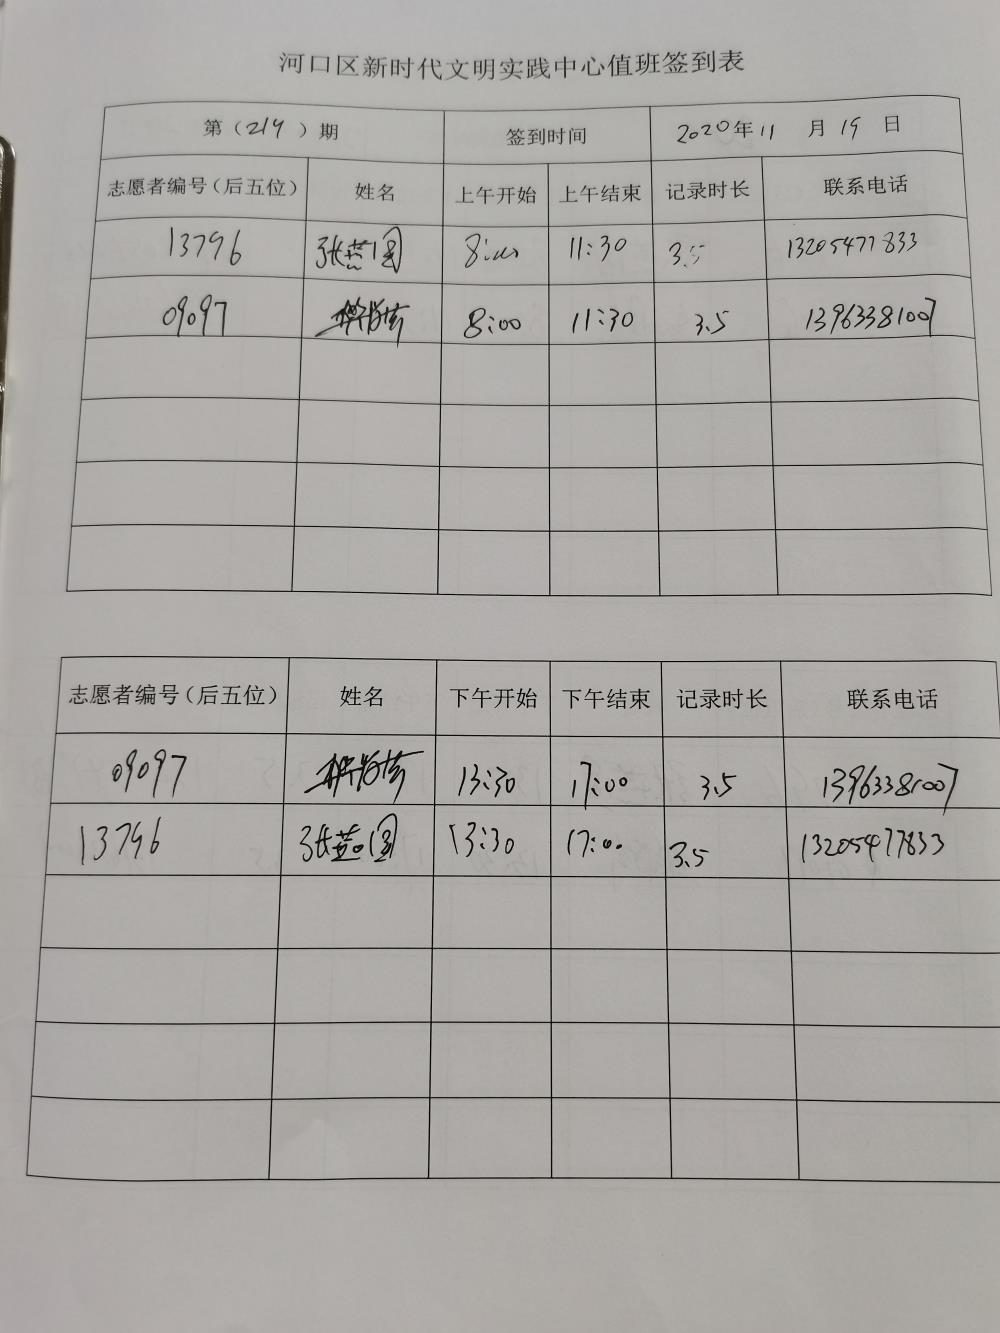 河口区新时代文明实践中心值班签到表
第（219）期 签到时间 2020年11月19日
志愿者编号（后五位） 姓名 上午开始 上午结束 记录时长 联系电话
13796 张 国 8:00 11:30 3.5 13205477833
09097 8:00 11:30 3.5 13963381007
志愿者编号（后五位） 姓名 下午开始 下午结束 记录时长 联系电话
09097 13:30 17:00 3.5 13963381007
13796 张 国 13:30 17:00 3.5 13205477833